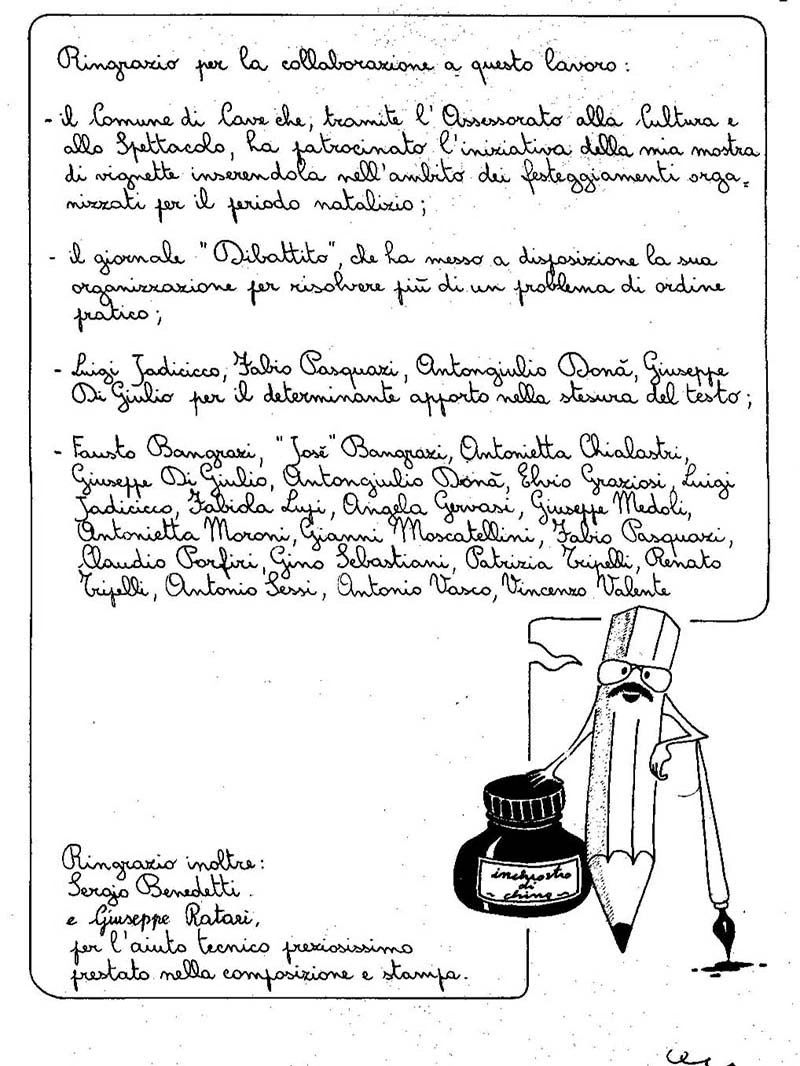 Ringrazio per la collaborazione a questo lavoro:
- il Comune di Cave che, tramite l'Assessorato alla Cultura e
allo Spettacolo, ha patrocinato l'iniziativa della mia mostra
di vignette inserendola nell'ambito dei festeggiamenti orga=
nizzati per il periodo natalizio;
- il giornale "Dibattito", che ha messo a disposizione la sua
organizzazione per risolvere più di un problema di ordine
pratico;
- Luigi Jadicicco, Fabio Pasquazi, Antongiulio Donà, Giuseppe
Di Giulio per il determinante apporto nella stesura del testo;
- Fausto Bangrazi, "José" Bangrazi, Antonietta Chialastri,
Giuseppe Di Giulio, Antongiulio Donà, Elvio Graziosi, Luigi
Jadicicco, Fabiola Lupi, Angela Gervasi, Giuseppe Medoli,
Antonietta Moroni, Gianni Moscatellini, Fabio Pasquazi,
Claudio Porfiri, Gino Sebastiani, Patrizia Tripelli, Renato
Tripelli, Antonio Sessi, Antonio Vasco, Vincenzo Valente
inchiostro
di
china
Ringrazio inoltre:
Sergio Benedetti
e Giuseppe
per l'aiuto tecnico preziosissimo
prestato nella composizione e stampa.